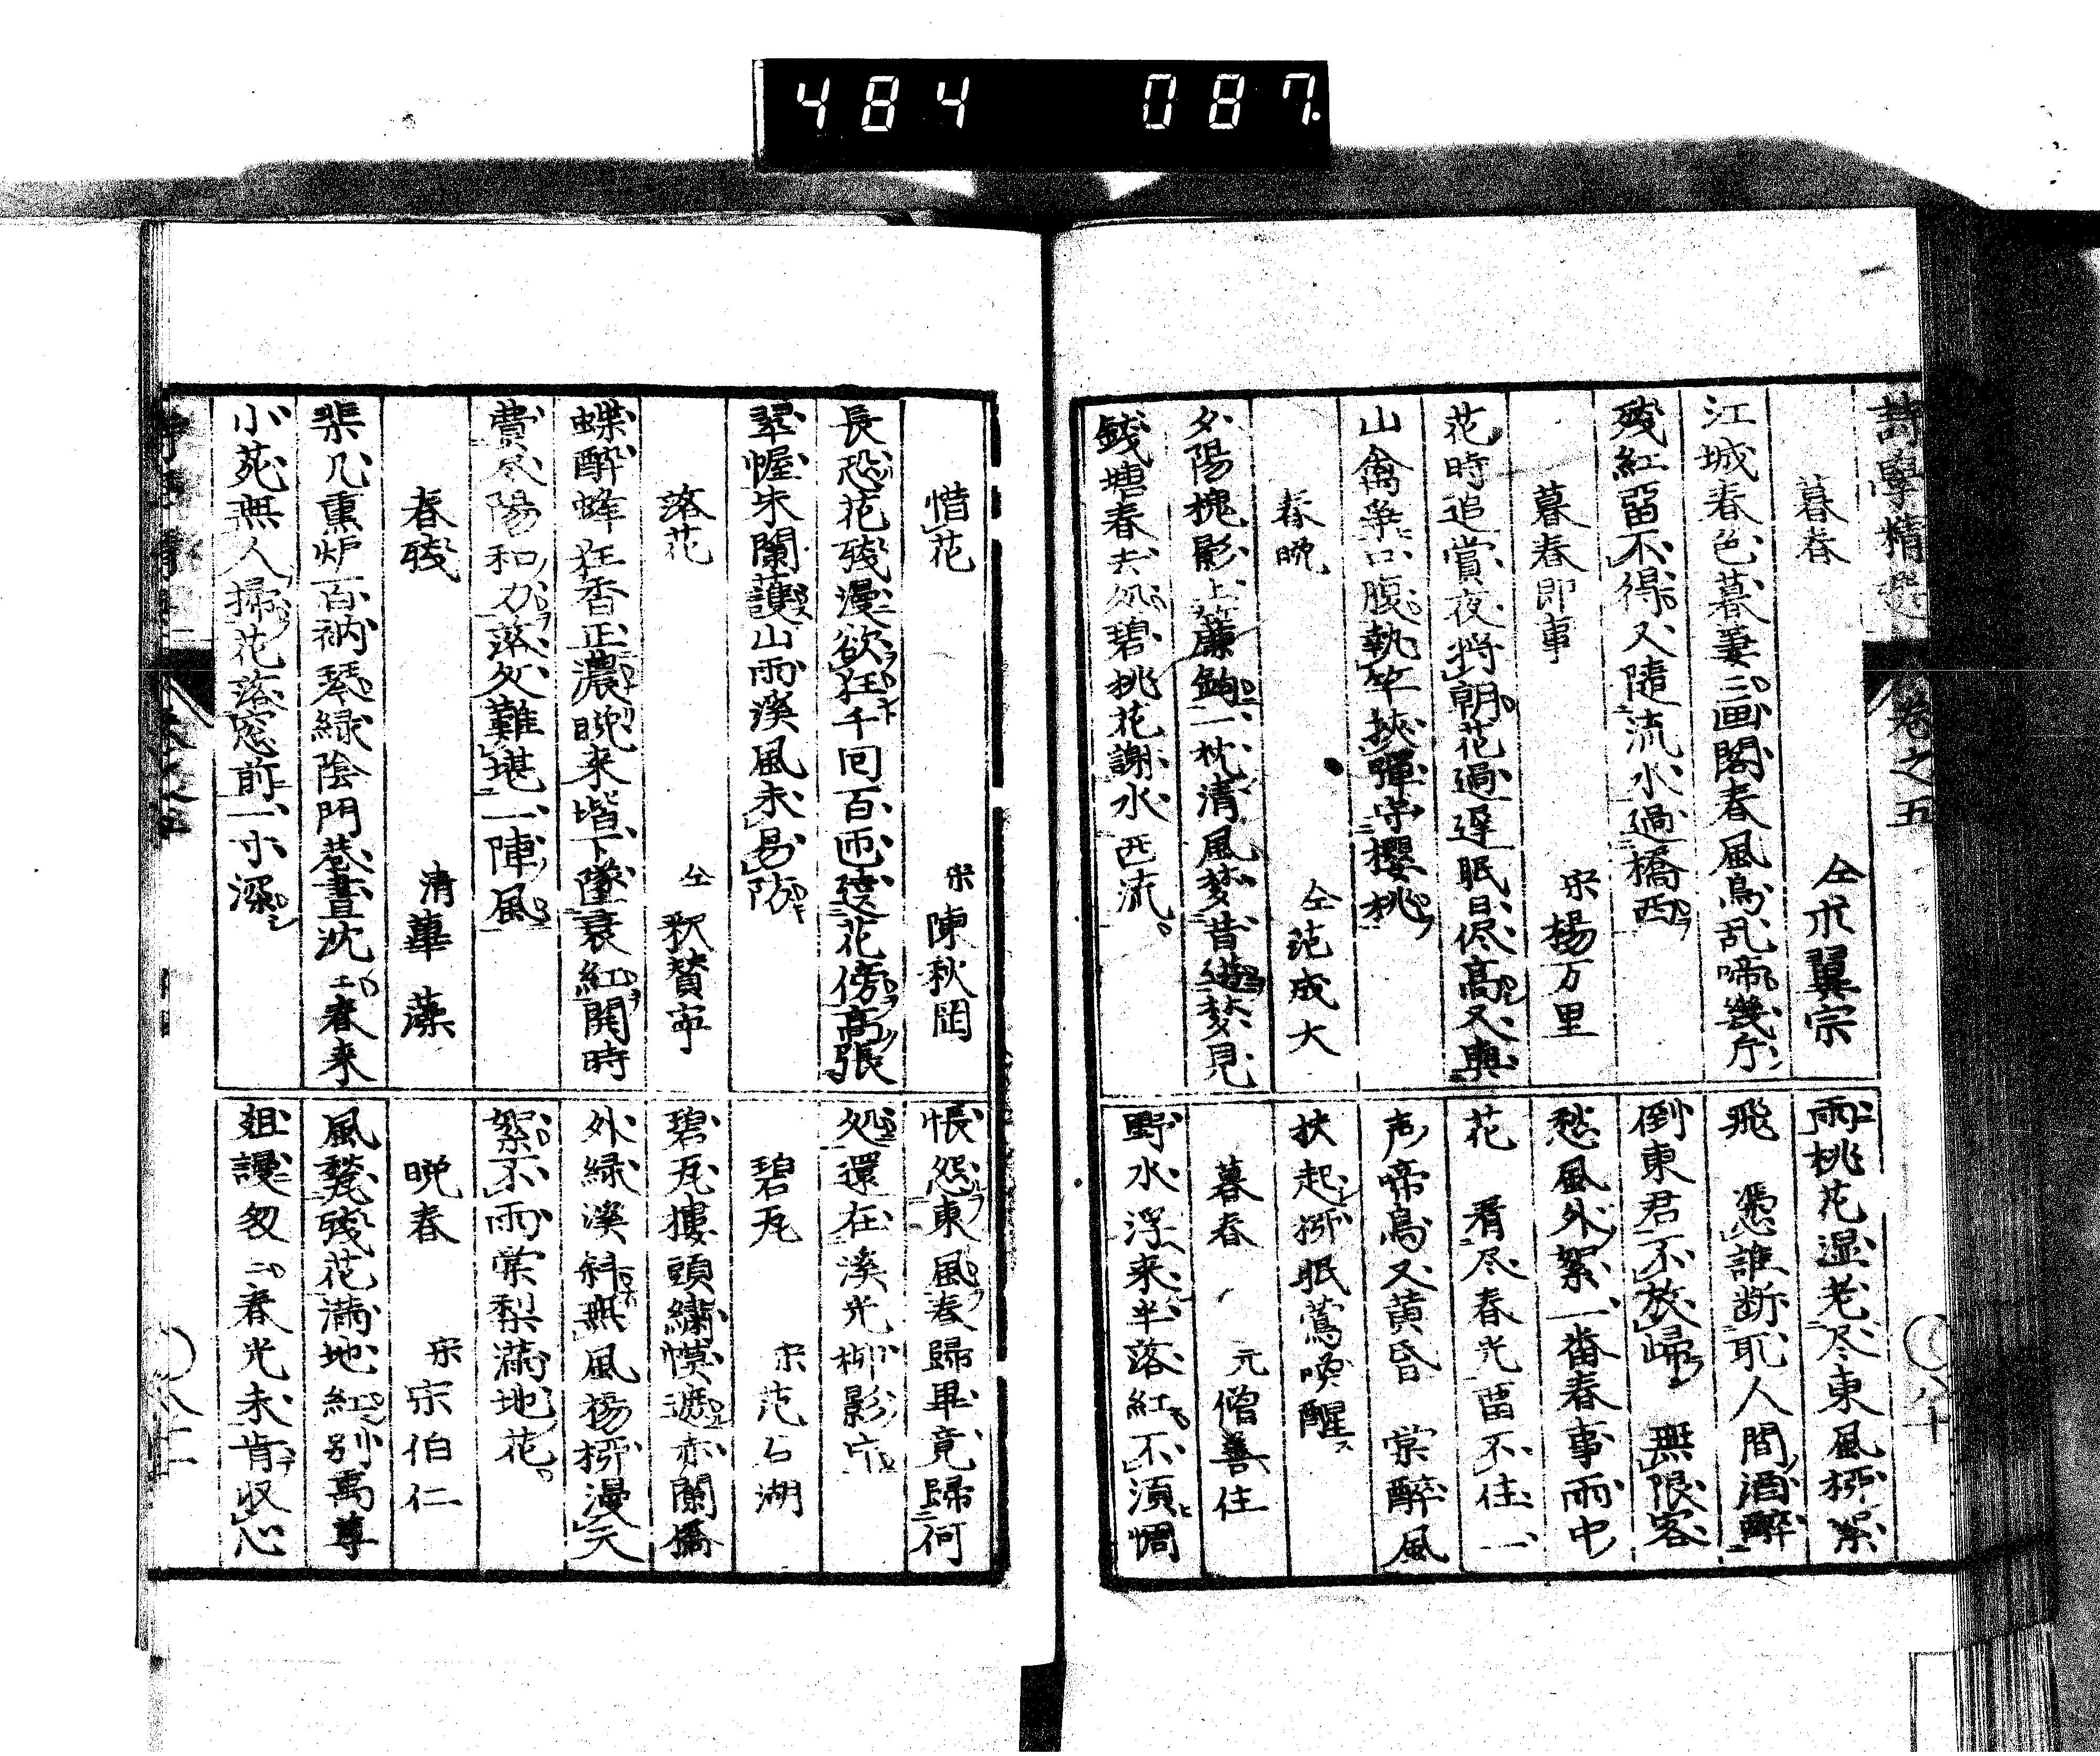 484 087.
詩學精選 卷之五
暮春 仝 朮翼宗
江城春色暮萋〻画閣春風鳥乱啼幾片
残紅畱不得又随流水過橋西
暮春即事 宋 楊万里
花時追賞夜将朝花過遅眠日侭高又與
山禽争口腹執竿挟弾守櫻桃
春晩 仝 范成大
夕陽槐影上簾鉤一枕清風夢昔遊夢見
銭塘春去処碧桃花謝水西流
雨桃花湿老尽東風柳絮
飛 憑誰断取人間酒酔
倒東君不放帰 無限客
愁風外絮一番春事雨中
花 看尽春光畱不住一
声啼鳥又黄昏 棠酔風
扶起柳眠鶯喚醒
暮春 元 僧善住
野水浮来半落紅不須惆
惜花 宋 陳秋岡
長恐花残漫欲狂千回百匝遶花傍高張
翠幄朱闌護山雨溪風未易防
落花 仝 釈賛寧
蝶酔蜂狂香正濃晩来堦下墜衰紅開時
費尽陽和力落処難堪一陣風
春残 清 華藻
棐几薫炉百衲琴緑陰門巷昼沈〻春来
小苑無人掃花落窓前一寸深
悵怨東風春帰畢竟帰何
処還在溪光柳影中
碧瓦 宋 范石湖
碧瓦楼頭繍幙遮赤闌橋
外緑溪斜無風楊柳漫天
絮不雨棠梨満地花
晩春 宋 宋伯仁
風甃残花満地紅別萬尊
爼謾匆〻春光未肯収心